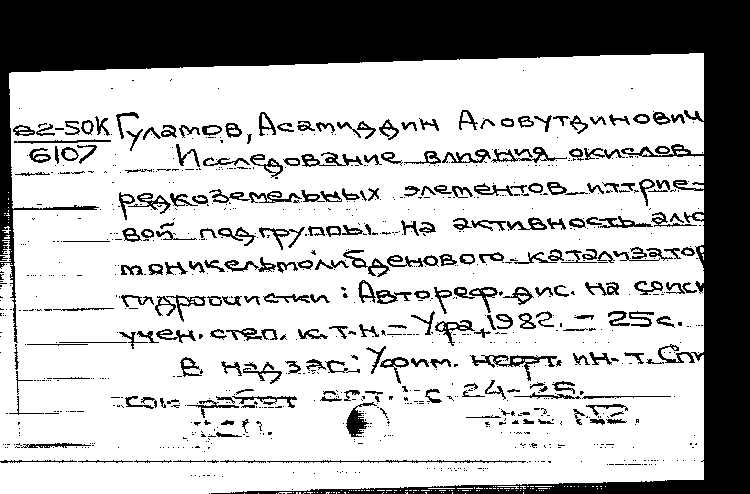 82-50К Гулямов, Асамиддин Аловутдинович
6107 Исследование влияния окислов
редкоземельных элементов иттрие-
вой подгруппы на активность алю
моникельмолибденового катализатор
гидроочистки: Автореф. дис. на соиск
учен. степ. к.т.н. - Уфа, 1982. - 25с.
В надзаг.: Уфим. нефт. ин-т. Спи
сок работ авт.: с. 24-25.